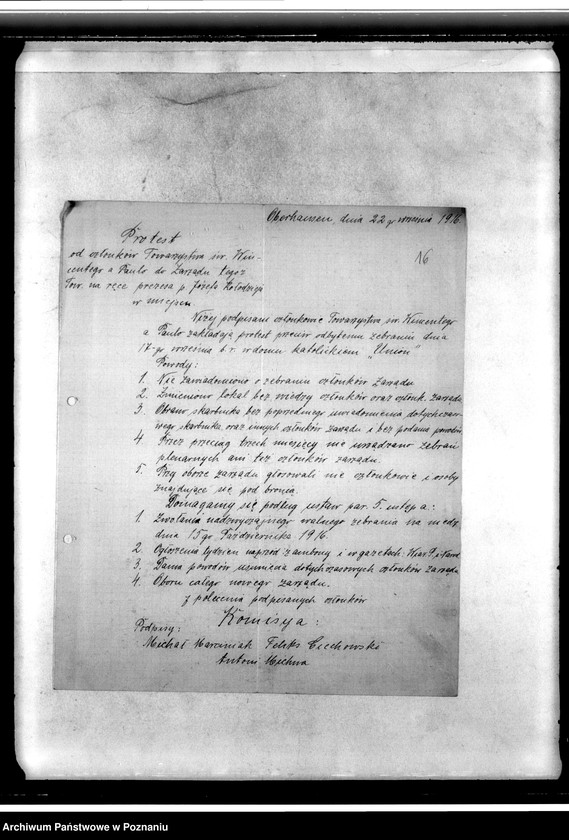 Oberhausen, dnia 22 go września 1916.
16
Protest
od członków Towarzystwa św. Win-
centego a Paulo do Zarządu tegoż
Tow. na ręce prezesa p. Józefa Kołodzieja
w miejscu
Niżej podpisani członkowie Towarzystwa św. Wincentego
a Paulo zakładają protest przeciw odbytemu zebraniu dnia
17-go września b. r. w domu katolickiem "Union"
Powody:
1. Nie zawiadomiono o zebraniu członków zarządu
2. Zmieniono lokal bez wiedzy członków oraz członk. zarządu
3. Obrano skarbnika bez poprzedniego uwiadomienia dotychczaso-
wego skarbnika, oraz innych członków zarządu i bez podania powodów
4. Przez przeciąg trzech miesięcy nie urządzano zebrań
plenarnych ani też członków zarządu.
5. Przy oborze zarządu głosowali nie członkowie i osoby
znajdujące się pod bronią.
Domagamy się podług ustaw par. 5. ustęp a:
1. Zwołania nadzwyczajnego walnego zebrania na niedz.
dnia 15 go Października 1916.
2. Ogłoszenia tydzień naprzód z ambony i w gazetach: Wiar. P. i Narod
3. Dania powodów usunięcia dotychczasowych członków zarządu
4. Oboru całego nowego zarządu.
z polecenia podpisanych członków
Komisya:
Podpisy:
Michał Marciniak Feliks Ciechowski
Antoni